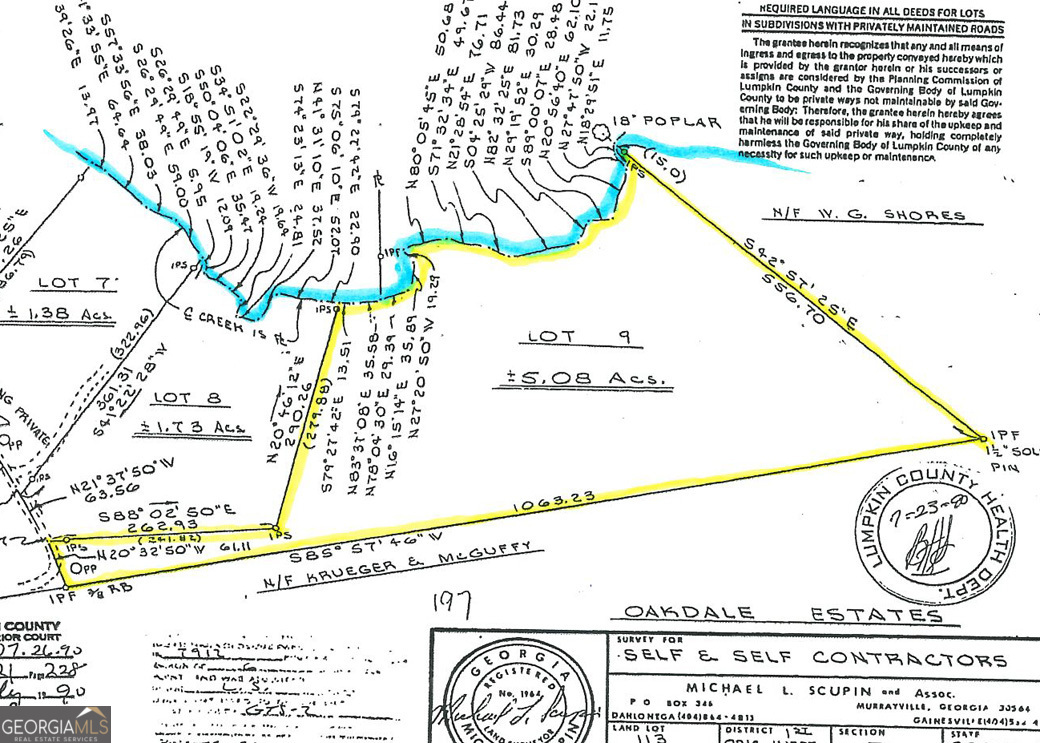 REQUIRED LANGUAGE IN ALL DEEDS FOR LOTS
IN SUBDIVISIONS WITH PRIVATELY MAINTAINED ROADS
The grantee herein recognizes that any and all means of
ingress and egress to the property conveyed hereby which
is provided by the grantor herein or his successors or
assigns are considered by the Planning Commission of
Lumpkin County and the Governing Body of Lumpkin
County to be private ways not maintainable by said Gov-
erning Body; Therefore, the grantee herein hereby agrees
that he will be responsible for his share of the upkeep and
maintenance of said private way, holding completely
harmless the Governing Body of Lumpkin County of any
necessity for such upkeep or maintenance.
39'26"E 13.97
S57°33'56"E 64.64
S26°29'49"E 38.03
S26°29'49"E 59.00
S18°55'19"W 5.95
S50°04'06"E 12.09
S34°51'02"E 35.47
S22°29'36"W 19.24
19.64
S74°23'13"E 24.81
N41°31'10"E 37.52
S75°06'10"E 52.07
S79°27'42"E 22.90
N80°05'45"E 50.68
S71°32'34"E 49.67
N21°28'54"E 76.71
S04°25'59"W 86.44
N82°32'25"E 81.73
N29°19'52"E 30.29
S89°00'07"E 28.48
N20°56'40"E 62.10
N27°47'50"W 22.1
N18°29'51"E 11.75
18" POPLAR
IPS
(15.0)
N/F W. G. SHORES
S42°57'25"E
556.70
IPF
1½" SOL
PIN
LOT 7
± 1.38 Acs.
IPS
IPF
IPS
₵ CREEK IS ⅊
(322.96)
361.31
S41°22'28"W
LOT 8
±1.73 Acs
N20°46'12"E
290.26
(279.88)
S79°27'42"E 13.51
N83°37'08"E 35.58
N78°04'30"E 29.39
N16°15'14"E 35.89
N27°20'50"W 19.29
LOT 9
±5.08 Acs.
NG PRIVATE
OPP
IPS
N21°37'50"W
63.56
S88°02'50"E
262.93
(241.82)
IPS
IPS
N20°32'50"W 61.11
OPP
IPF ⅜ RB
1063.23
S85°57'46"W
N/F KRUEGER & McGUFFY
LUMPKIN COUNTY HEALTH DEPT.
7-23-90
197
OAKDALE ESTATES
N COUNTY
IOR COURT
27.26.90
21 Page 228
19 90
SURVEY FOR
SELF & SELF CONTRACTORS
MICHAEL L. SCUPIN and Assoc.
P O BOX 346
MURRAYVILLE, GEORGIA 30564
DAHLONEGA (404) 864-4813
GAINESVILLE (404) 53
LAND LOT
113
DISTRICT 12
SECTION
STATE
GEORGIA
REGISTERED
No. 1964
LAND SURVEYOR
Michael L. Scupin
GEORGIAMLS
REAL ESTATE SERVICES